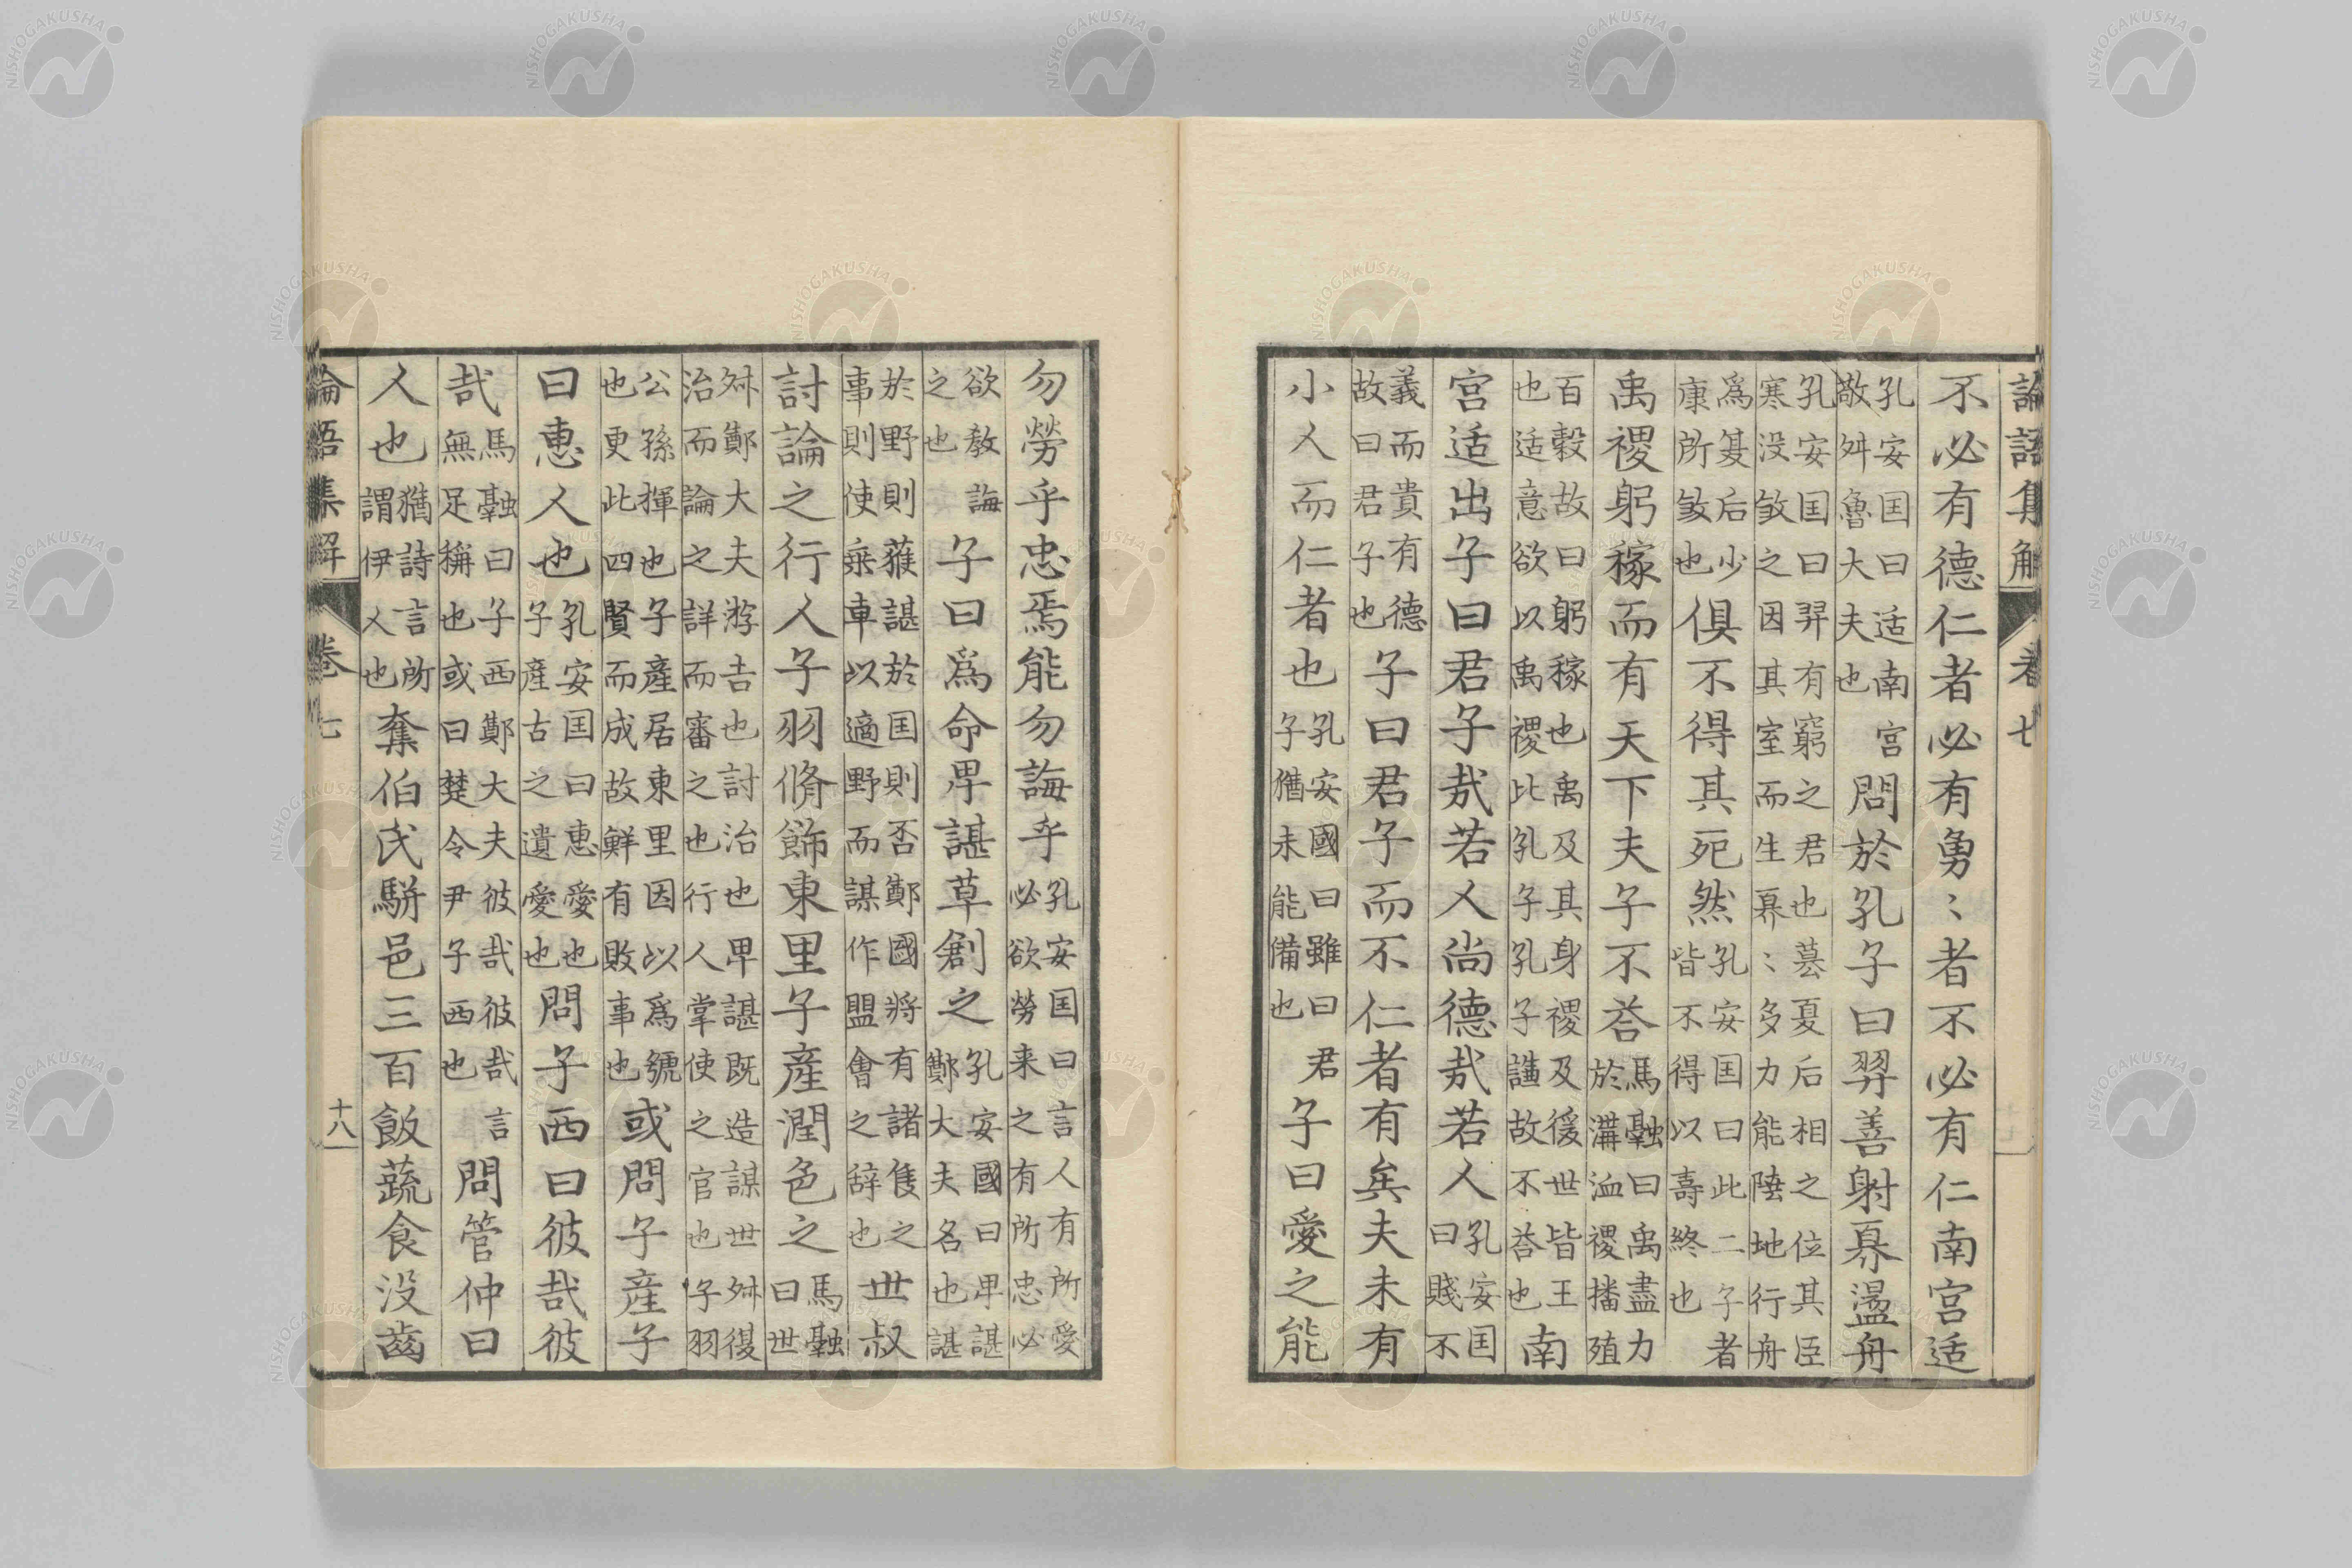 論語集解 卷七
不必有德仁者必有勇〻者不必有仁南宮适
孔安囯曰适南宮敬舛魯大夫也問於孔子曰羿善射奡盪舟
孔安囯曰羿有窮之君也簒夏后相之位其臣寒浞敓之因其室而生奡〻多力能陸地行舟
爲夏后少康所敓也俱不得其死然孔安囯曰此二子者皆不得以壽終也
禹稷躬稼而有天下夫子不荅馬融曰禹盡力於溝洫稷播殖
百穀故曰躬稼也禹及其身稷及後世皆王也适意欲以禹稷比孔子孔子謙故不荅也南
宮适出子曰君子哉若人尚德哉若人孔安囯曰賤不
義而貴有德故曰君子也子曰君子而不仁者有矣夫未有
小人而仁者也孔安國曰雖曰君子猶未能備也子曰愛之能
勿勞乎忠焉能勿誨乎孔安囯曰言人有所愛必欲勞来之有所忠必
欲教誨之也子曰爲命卑諶草創之孔安國曰卑諶鄭大夫名也諶
於野則獲諶於囯則否鄭國將有諸隻之事則使乗車以適野而謀作盟會之辞也世叔
討論之行人子羽脩飾東里子產潤色之馬融曰世
舛鄭大夫游吉也討治也卑諶既造謀世舛復治而論之詳而審之也行人掌使之官也子羽
公孫揮也子產居東里因以爲號也更此四賢而成故鮮有敗事也或問子產子
曰惠人也孔安囯曰惠愛也子產古之遺愛也問子西曰彼哉彼
哉馬融曰子西鄭大夫彼哉彼哉言無足稱也或曰楚令尹子西也問管仲曰
人也猶詩言所謂伊人也奪伯氏駢邑三百飯蔬食没齒
論語集解 卷七 十八
NISHOGAKUSHA